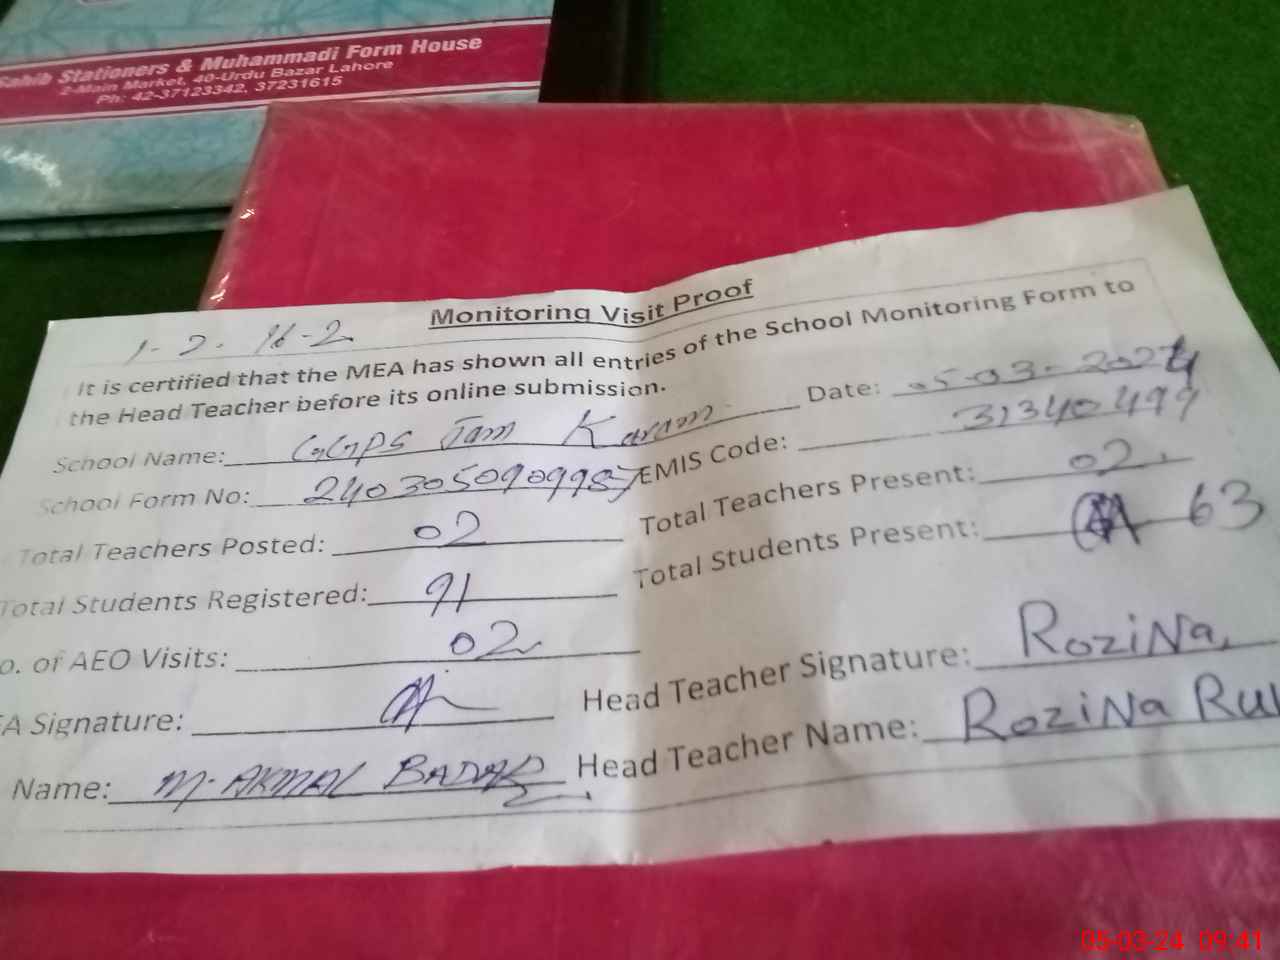 Sahib Stationers & Muhammadi Form House
2-Main Market, 40-Urdu Bazar Lahore
Ph: 42-37123342, 37231615
Monitoring Visit Proof
It is certified that the MEA has shown all entries of the School Monitoring Form to
the Head Teacher before its online submission.
School Name: GGPS Jam Karam Date: 05-03-2024
School Form No: EMIS Code: 31340499
Total Teachers Posted: 02 Total Teachers Present: 02
Total Students Registered: 91 Total Students Present: 63
o. of AEO Visits: 02
EA Signature: Head Teacher Signature: RoziNa
Name: M. AKMAL BADAR Head Teacher Name: RoziNa
05-03-24 09:41